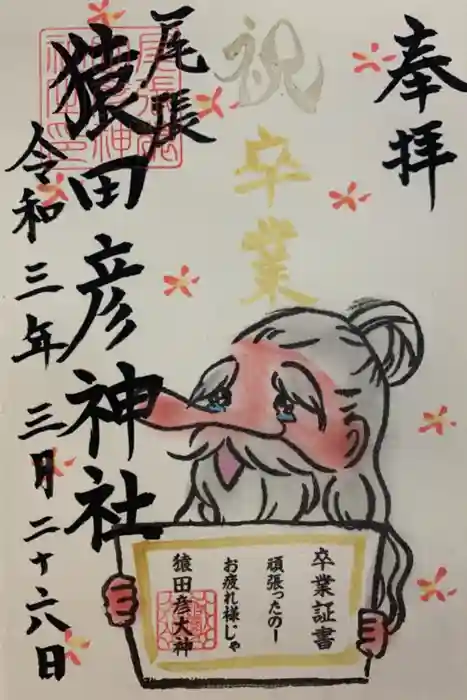 奉拝
祝
卒業
尾張
猿田彦神社
令和三年三月二十六日
卒業証書
頑張ったのー
お疲れ様じゃ
猿田彦大神